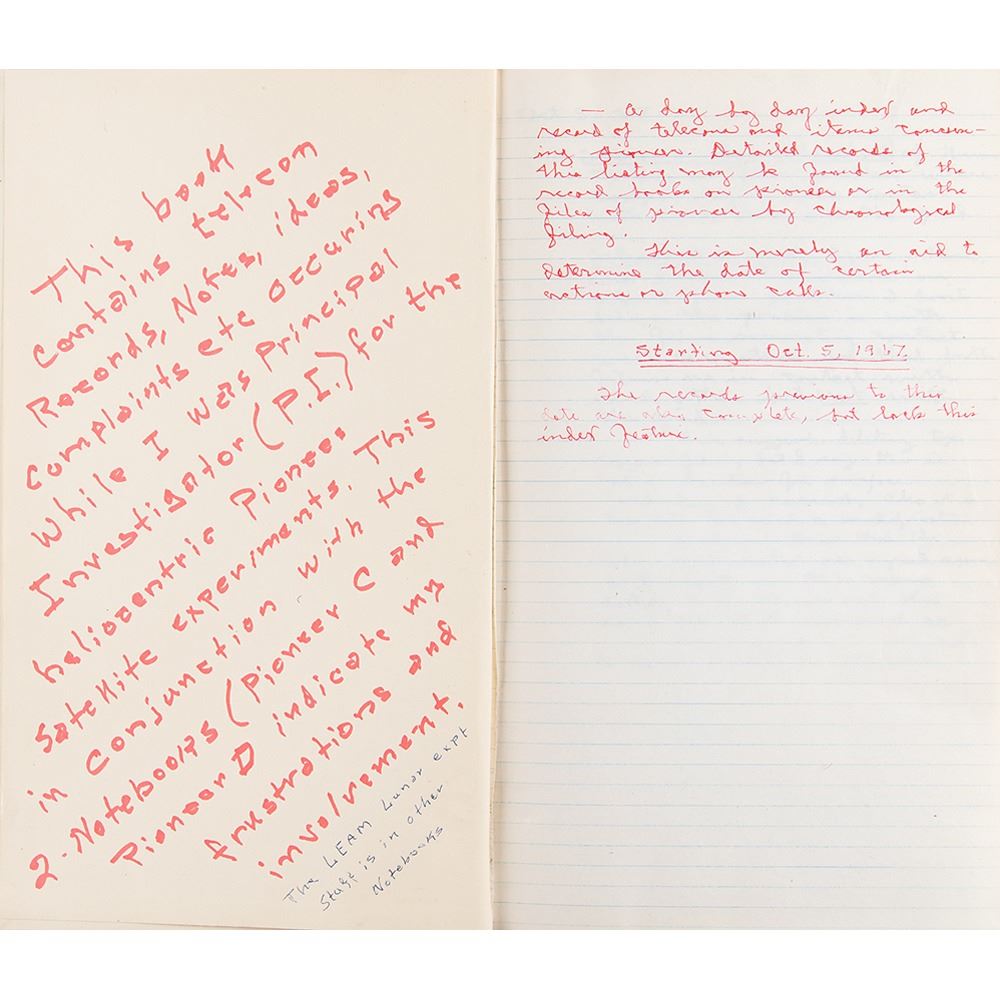 This book
contains telecon
Records, Notes, ideas,
complaints etc occuring
while I was principal
Investigator (P.I.) for the
heliocentric Pioneer
satellite experiments. This
in conjunction with the
2. Notebooks (Pioneer C and
Pioneer D indicate my
frustrations and
involvement.
The LEAM Lunar expt
Stuff is in other
Notebooks
— A day by day index and
record of telecons and items concern-
ing pioneer. Detailed records of
this listing may be found in the
record books on pioneer or in the
files of pioneer by chronological
filing.
This is merely an aid to
determine the date of certain
actions or phone calls.
Starting Oct. 5, 1967.
The records previous to this
date are also complete, but lack this
index feature.